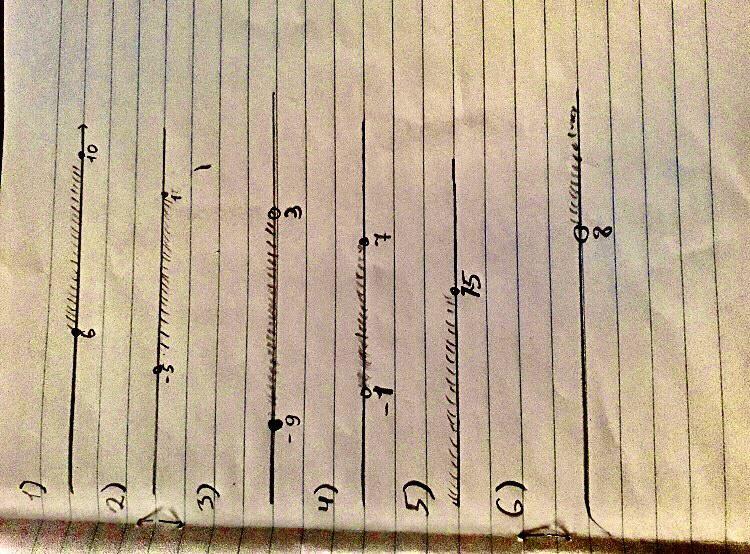 1) 6 10
2) -5
3) -9 3
4) -1 7
5) 15
6) 8